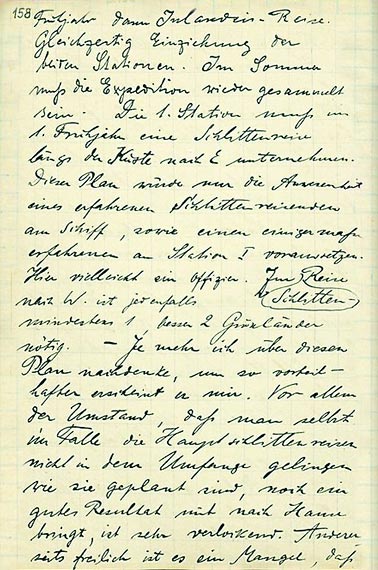 158
Frühjahr dann Inlandeis-Reise.
Gleichzeitig Einziehung der
beiden Stationen. Im Sommer
muß die Expedition wieder gesammelt
sein. Die 1. Station muß im
1. Frühjahr eine Schlittenreise
längs der Küste nach E unternehmen.
Dieser Plan würde nur die Anwesenheit
eines erfahrenen Schlittenreisenden
am Schiff, sowie einen einigermaßen
erfahrenen an Station I voraussetzen.
Hier vielleicht ein Offizier. Zur Reise
nach W. ist jedenfalls Schlitten-
mindestens 1, besser 2 Grönländer
nötig. — Je mehr ich über diesen
Plan nachdenke, um so vorteil-
hafter erscheint er mir. Vor allem
der Umstand, daß man selbst
im Falle die Hauptschlittenreisen
nicht in dem Umfange gelingen
wie sie geplant sind, noch ein
gutes Resultat mit nach Hause
bringt, ist sehr verlockend. Anderer
seits freilich ist es ein Mangel, daß